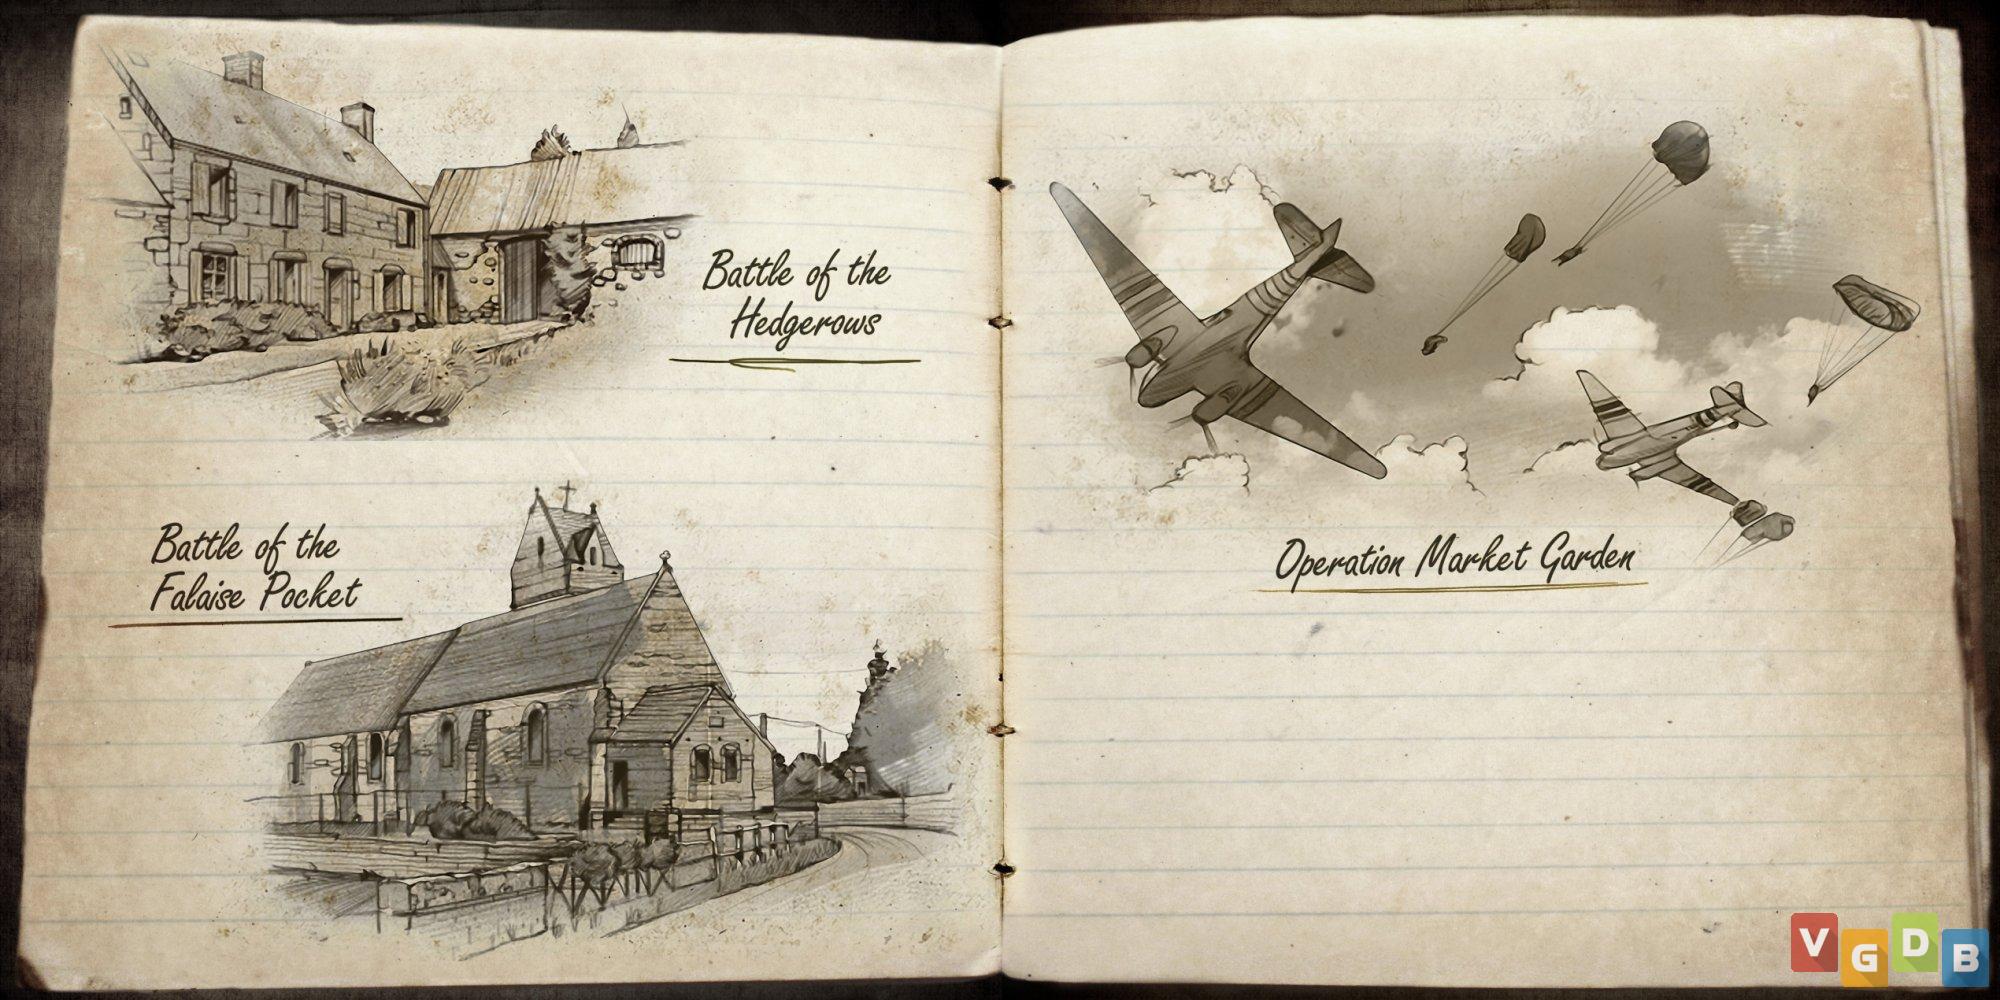 Battle of the
Hedgerows
Battle of the
Falaise Pocket
Operation Market Garden
VGDB